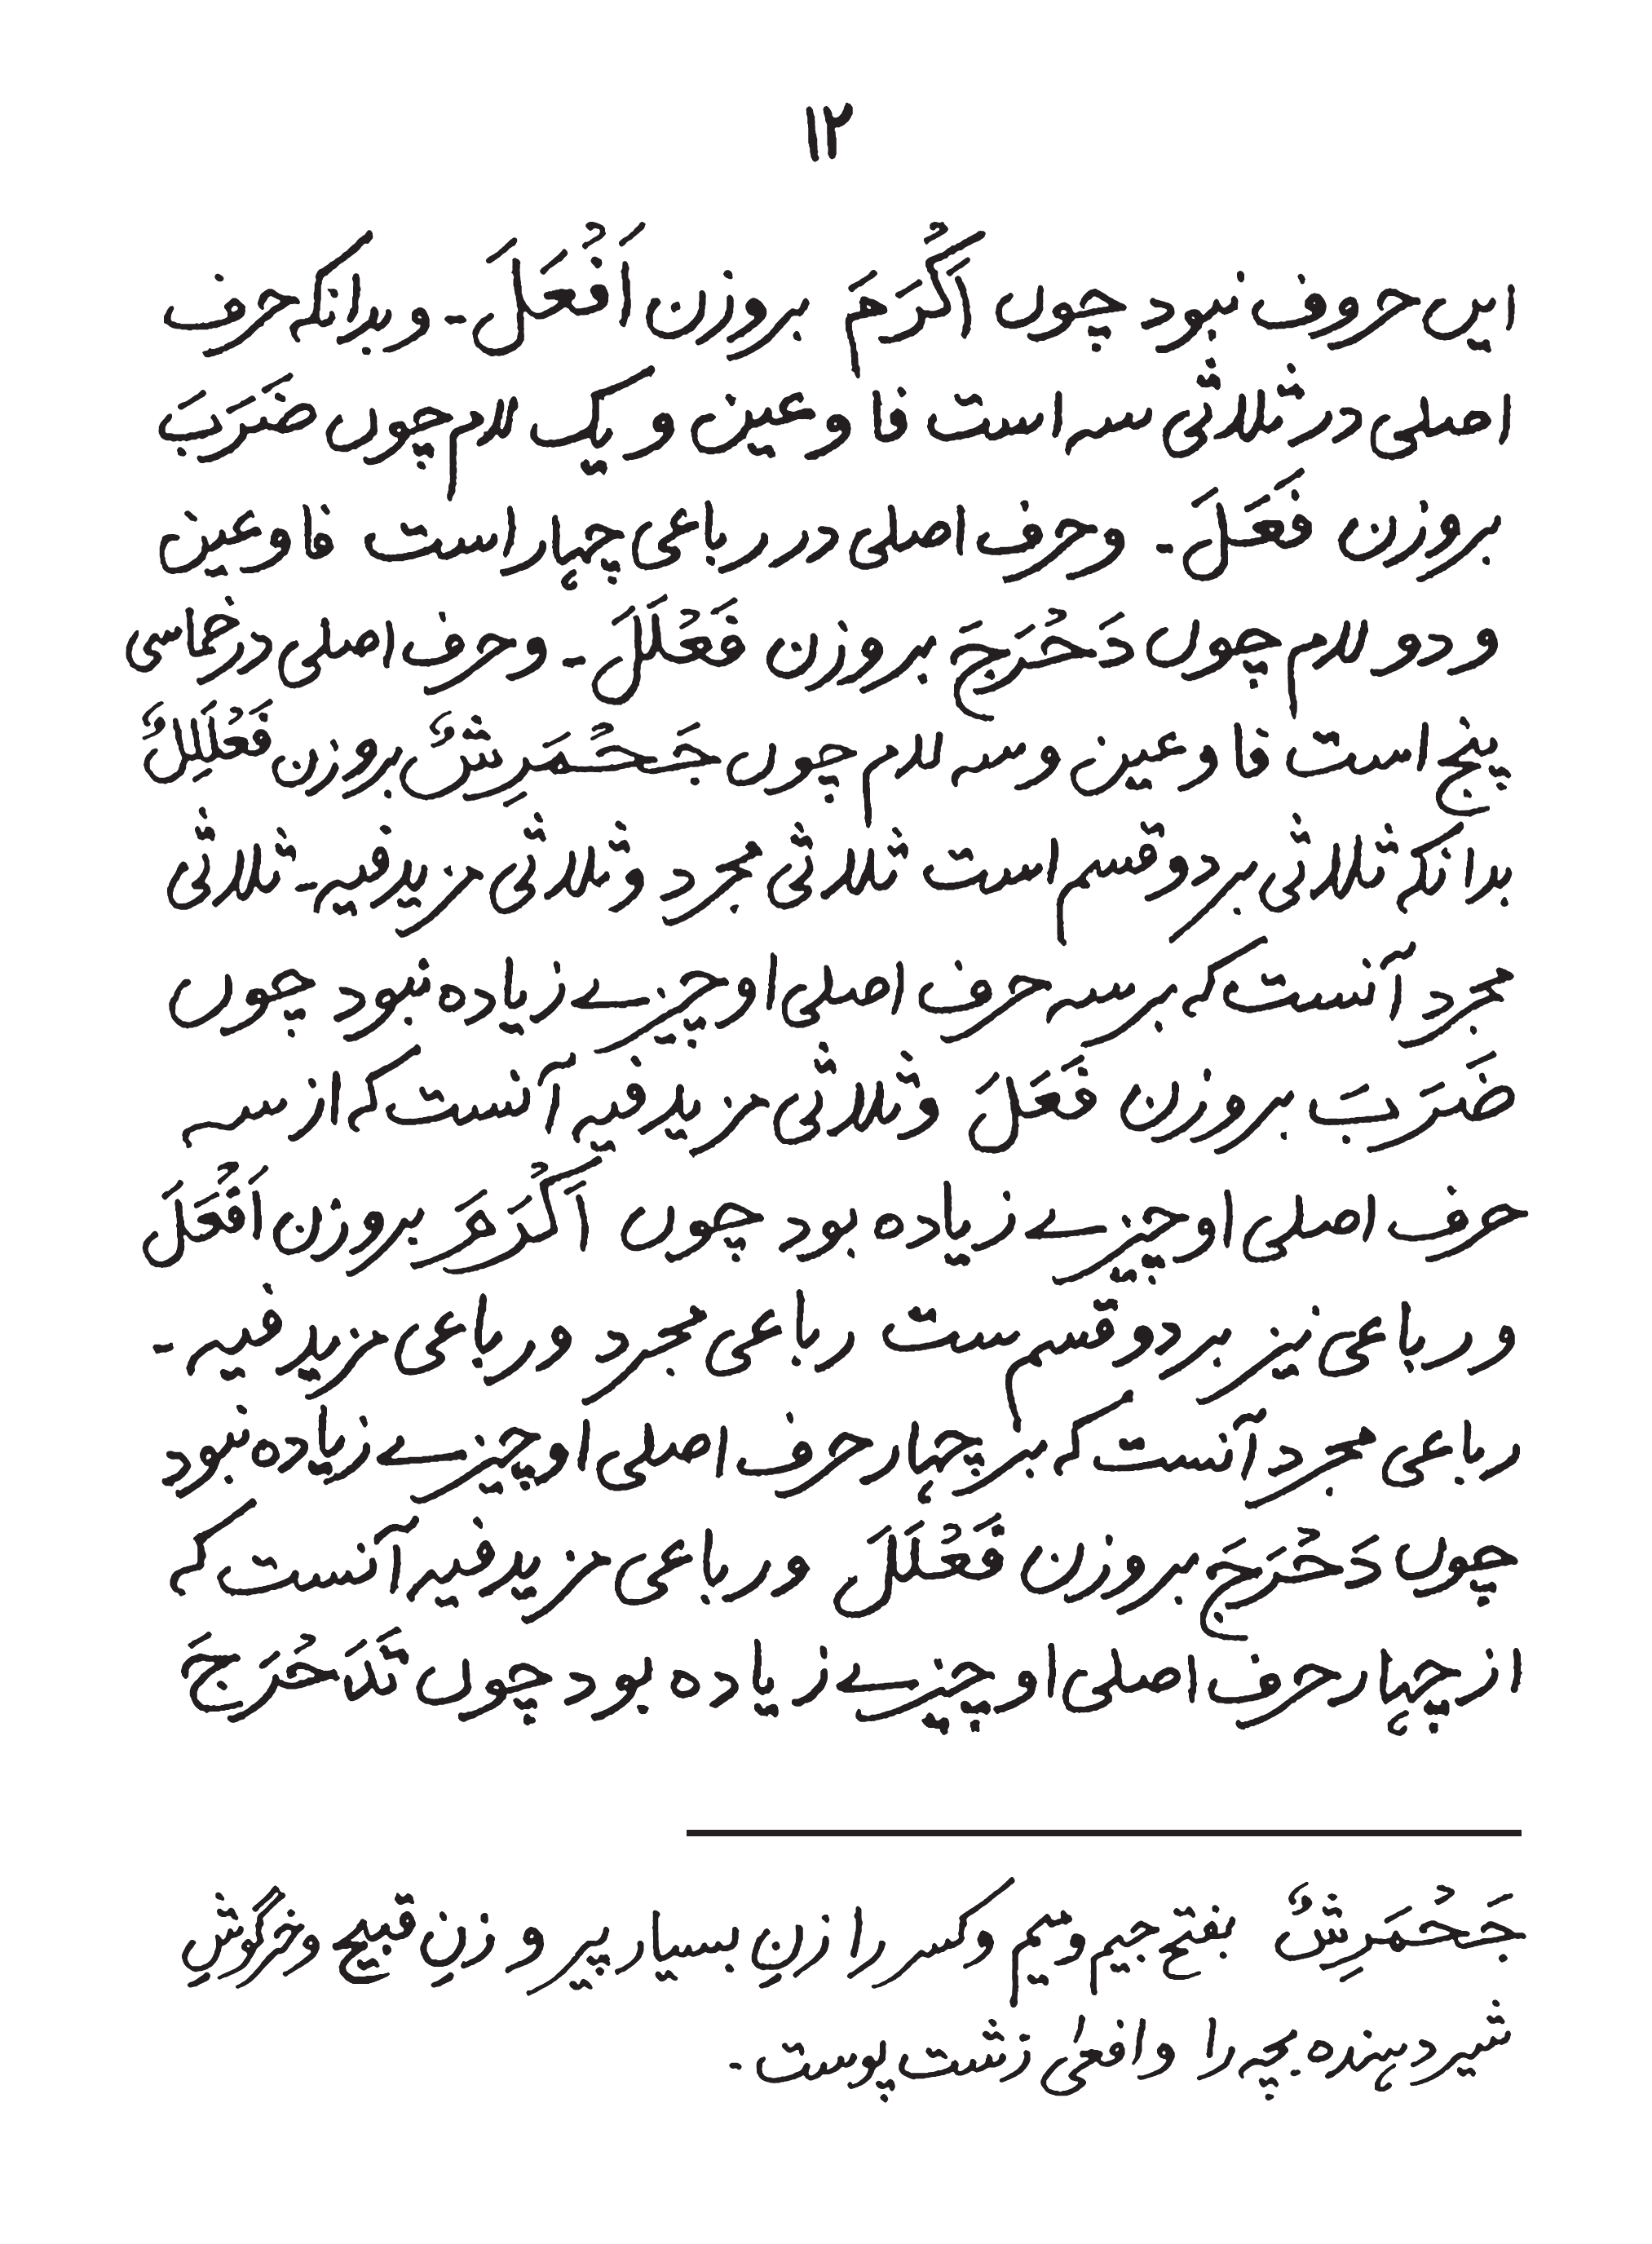 ۱۲
ایں حروف نبود چوں اَکْرَمَ بروزن اَفْعَلَ۔ و بدانکہ حرف
اصلی در ثلاثی سہ است فا و عین و یک لام چوں ضَرَبَ
بروزن فَعَلَ۔ وحرف اصلی در رباعی چہار است فا و عین
و دو لام چوں دَحْرَجَ بروزن فَعْلَلَ۔ وحرف اصلی در خماسی
پنج است فا و عین و سہ لام چوں جَحْمَرِشٌ بروزن فَعْلَلِلٌ
بدانکہ ثلاثی بر دو قسم است ثلاثی مجرد و ثلاثی مزید فیہ۔ ثلاثی
مجرد آنست کہ بر سہ حرف اصلی او چیزے زیادہ نبود چوں
ضَرَبَ بروزن فَعَلَ و ثلاثی مزید فیہ آنست کہ از سہ
حرف اصلی او چیزے زیادہ بود چوں اَکْرَمَ بروزن اَفْعَلَ
و رباعی نیز بر دو قسم ست رباعی مجرد و رباعی مزید فیہ۔
رباعی مجرد آنست کہ بر چہار حرف اصلی او چیزے زیادہ نبود
چوں دَحْرَجَ بروزن فَعْلَلَ و رباعی مزید فیہ آنست کہ
از چہار حرف اصلی او چیزے زیادہ بود چوں تَدَحْرَجَ
جَحْمَرِشٌ بفتح جیم و میم و کسر را زنِ بسیار پیر و زنِ قبیح و خرگوشِ
شیر دہندہ بچہ را و افعیٰ زشت پوست۔